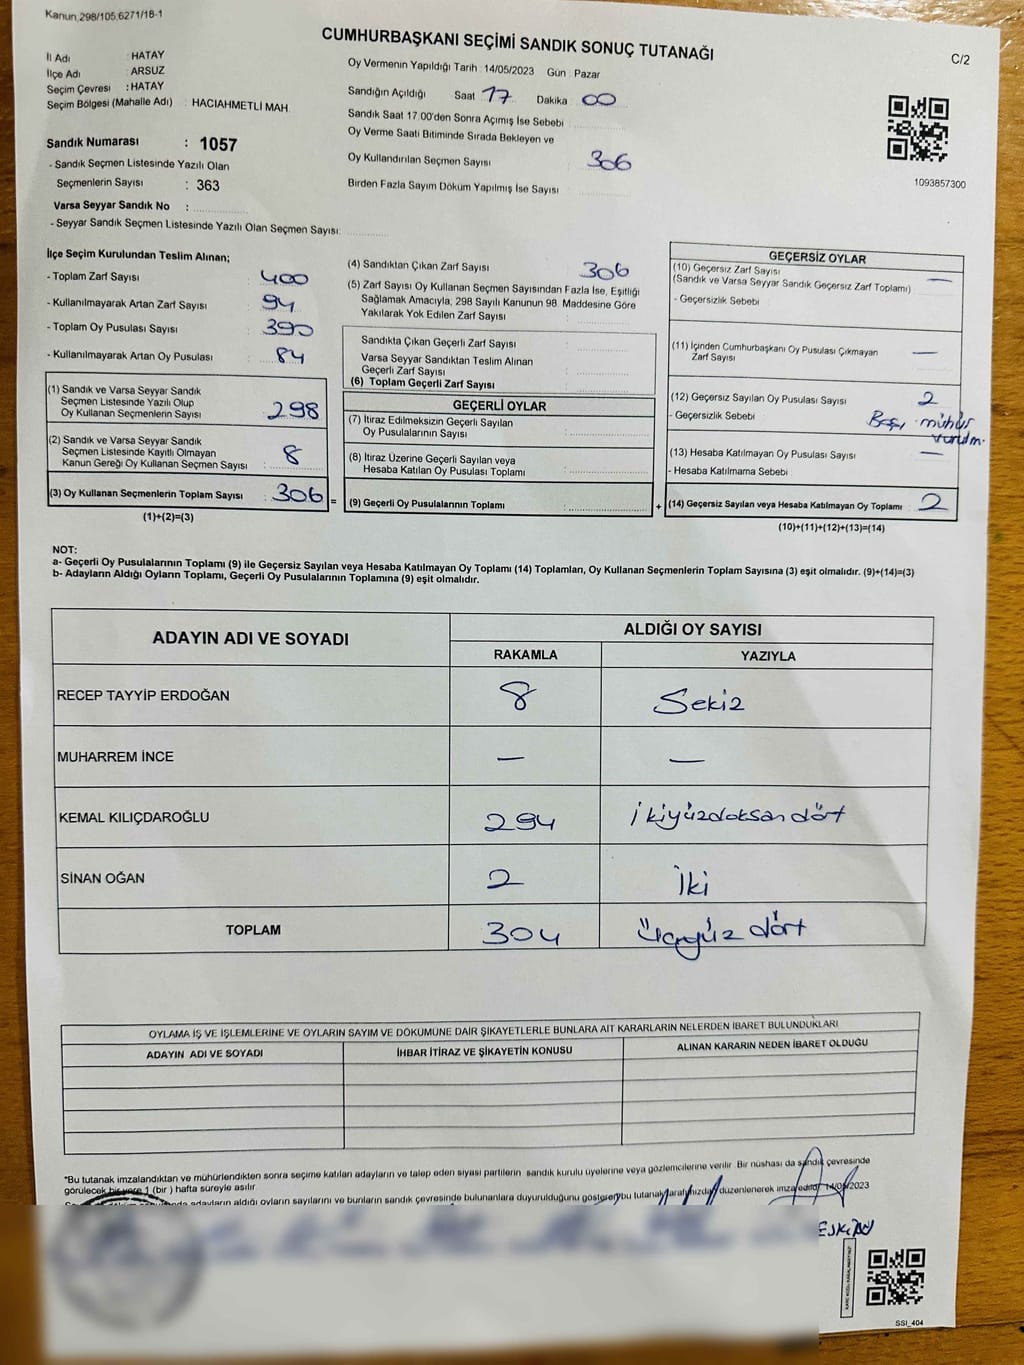 Kanun:298/105,6271/18-1
CUMHURBAŞKANI SEÇİMİ SANDIK SONUÇ TUTANAĞI
C/2
İl Adı : HATAY
İlçe Adı : ARSUZ
Seçim Çevresi : HATAY
Seçim Bölgesi (Mahalle Adı) : HACIAHMETLİ MAH.
Oy Vermenin Yapıldığı Tarih : 14/05/2023 Gün : Pazar
Sandığın Açıldığı Saat 17 Dakika 00
Sandık Saat 17.00'den Sonra Açımış İse Sebebi :
Oy Verme Saati Bitiminde Sırada Bekleyen ve
Oy Kullandırılan Seçmen Sayısı : 306
Birden Fazla Sayım Döküm Yapılmış İse Sayısı :
1093857300
Sandık Numarası : 1057
- Sandık Seçmen Listesinde Yazılı Olan
Seçmenlerin Sayısı : 363
Varsa Seyyar Sandık No :
- Seyyar Sandık Seçmen Listesinde Yazılı Olan Seçmen Sayısı:
İlçe Seçim Kurulundan Teslim Alınan;
- Toplam Zarf Sayısı : 400
- Kullanılmayarak Artan Zarf Sayısı : 94
- Toplam Oy Pusulası Sayısı : 390
- Kullanılmayarak Artan Oy Pusulası : 84
(1) Sandık ve Varsa Seyyar Sandık
Seçmen Listesinde Yazılı Olup
Oy Kullanan Seçmenlerin Sayısı : 298
(2) Sandık ve Varsa Seyyar Sandık
Seçmen Listesinde Kayıtlı Olmayan
Kanun Gereği Oy Kullanan Seçmen Sayısı : 8
(3) Oy Kullanan Seçmenlerin Toplam Sayısı : 306 =
(1)+(2)=(3)
(4) Sandıktan Çıkan Zarf Sayısı : 306
(5) Zarf Sayısı Oy Kullanan Seçmen Sayısından Fazla İse, Eşitliği
Sağlamak Amacıyla, 298 Sayılı Kanunun 98. Maddesine Göre
Yakılarak Yok Edilen Zarf Sayısı :
Sandıkta Çıkan Geçerli Zarf Sayısı :
Varsa Seyyar Sandıktan Teslim Alınan
Geçerli Zarf Sayısı :
(6) Toplam Geçerli Zarf Sayısı :
GEÇERLİ OYLAR
(7) İtiraz Edilmeksizin Geçerli Sayılan
Oy Pusulalarının Sayısı :
(8) İtiraz Üzerine Geçerli Sayılan veya
Hesaba Katılan Oy Pusulası Toplamı :
(9) Geçerli Oy Pusulalarının Toplamı : +
GEÇERSİZ OYLAR
(10) Geçersiz Zarf Sayısı : —
(Sandık ve Varsa Seyyar Sandık Geçersiz Zarf Toplamı)
- Geçersizlik Sebebi
(11) İçinden Cumhurbaşkanı Oy Pusulası Çıkmayan
Zarf Sayısı : —
(12) Geçersiz Sayılan Oy Pusulası Sayısı : 2
- Geçersizlik Sebebi : Başı mühür
(13) Hesaba Katılmayan Oy Pusulası Sayısı : —
- Hesaba Katılmama Sebebi :
(14) Geçersiz Sayılan veya Hesaba Katılmayan Oy Toplamı : 2
(10)+(11)+(12)+(13)=(14)
NOT:
a- Geçerli Oy Pusulalarının Toplamı (9) ile Geçersiz Sayılan veya Hesaba Katılmayan Oy Toplamı (14) Toplamları, Oy Kullanan Seçmenlerin Toplam Sayısına (3) eşit olmalıdır. (9)+(14)=(3)
b- Adayların Aldığı Oyların Toplamı, Geçerli Oy Pusulalarının Toplamına (9) eşit olmalıdır.
ADAYIN ADI VE SOYADI
ALDIĞI OY SAYISI
RAKAMLA YAZIYLA
RECEP TAYYİP ERDOĞAN 8 Sekiz
MUHARREM İNCE — —
KEMAL KILIÇDAROĞLU 294 ikiyüzdoksan dört
SİNAN OĞAN 2 İki
TOPLAM 304 üçyüz dört
OYLAMA İŞ VE İŞLEMLERİNE VE OYLARIN SAYIM VE DÖKÜMÜNE DAİR ŞİKAYETLERLE BUNLARA AİT KARARLARIN NELERDEN İBARET BULUNDUKLARI
ADAYIN ADI VE SOYADI İHBAR İTİRAZ VE ŞİKAYETİN KONUSU ALINAN KARARIN NEDEN İBARET OLDUĞU
*Bu tutanak imzalandıktan ve mühürlendikten sonra seçime katılan adayların ve talep eden siyasi partilerin sandık kurulu üyelerine veya gözlemcilerine verilir. Bir nüshası da sandık çevresinde
görülecek bir yere 1 (bir) hafta süreyle asılır.
adayların aldığı oyların sayılarını ve bunların sandık çevresinde bulunanlara duyurulduğunu gösteren bu tutanak tarafımızdan düzenlenerek imza edildi. 14/05/2023
SSI_404